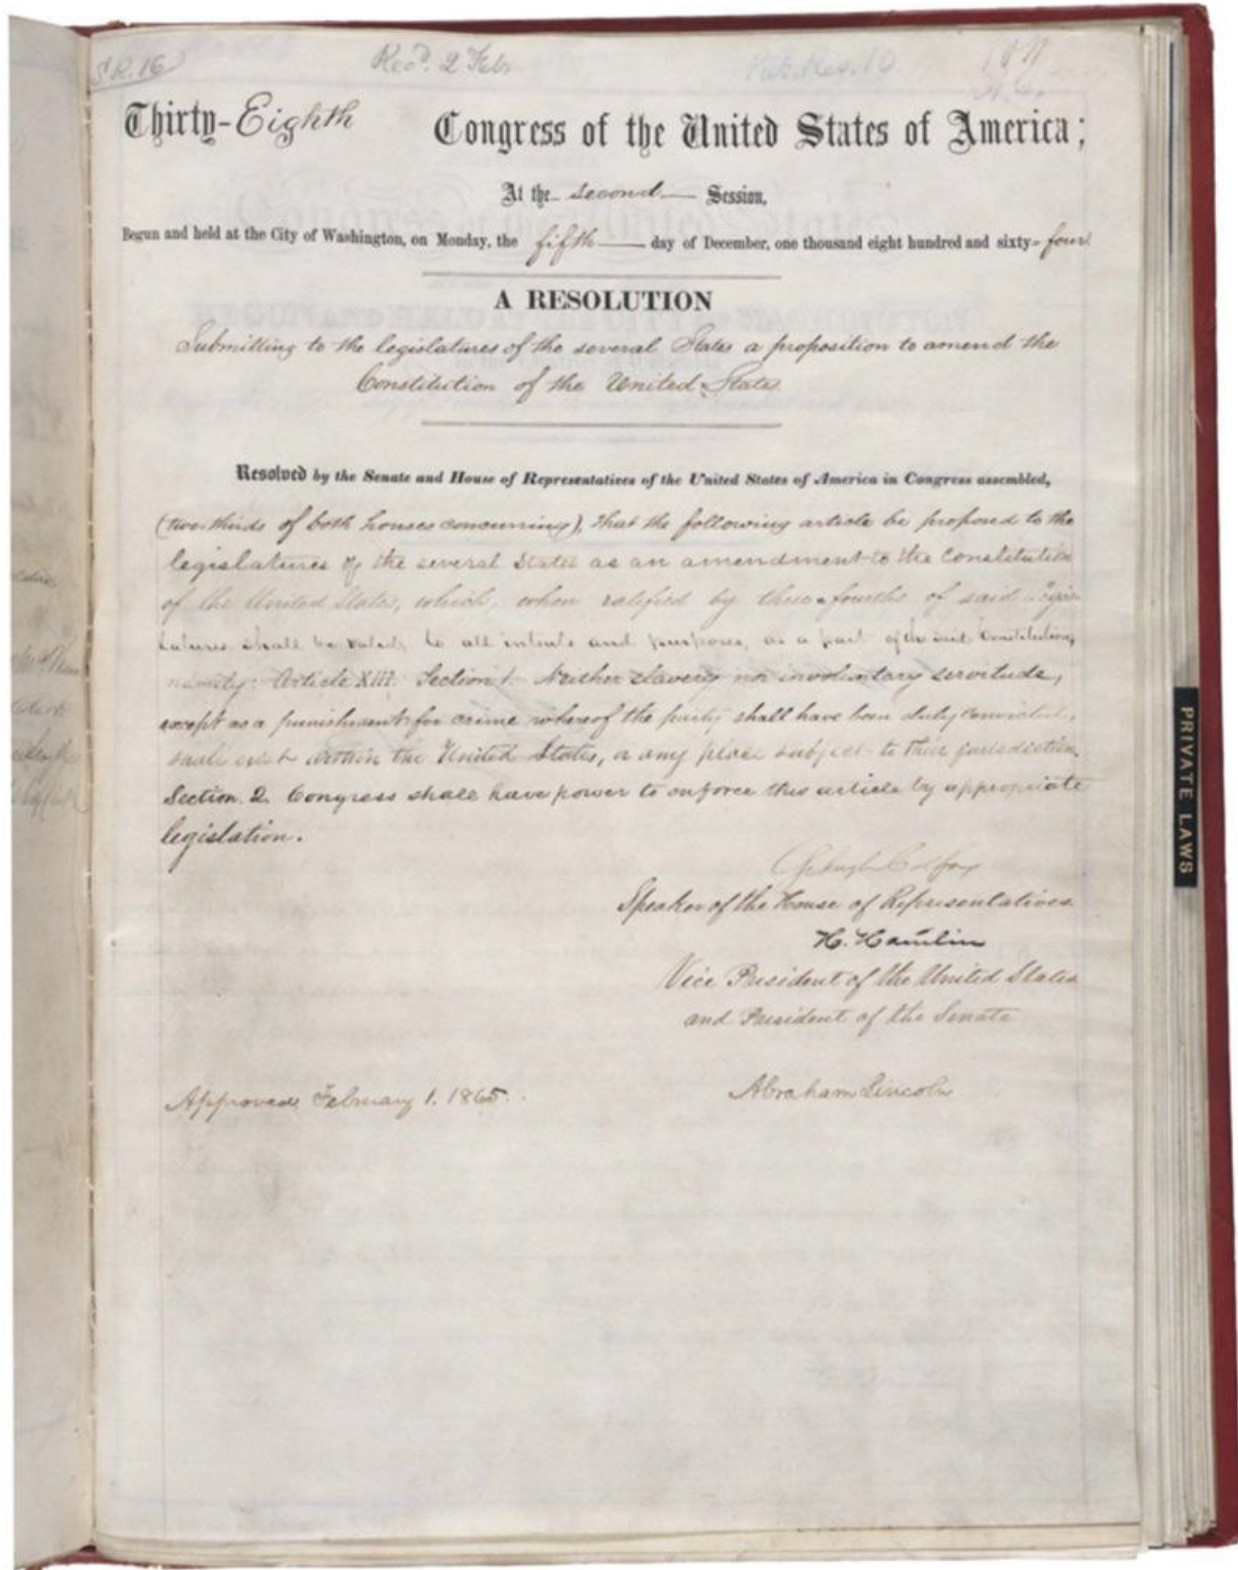 S.R. 16
Rec'd. 2 Feb
Pub. Res. 10.
Thirty-Eighth Congress of the United States of America;
At the second Session,
Begun and held at the City of Washington, on Monday, the fifth day of December, one thousand eight hundred and sixty-four.
A RESOLUTION
Submitting to the legislatures of the several States a proposition to amend the
Constitution of the United States.
Resolved by the Senate and House of Representatives of the United States of America in Congress assembled,
(two-thirds of both houses concurring), That the following article be proposed to the
legislatures of the several States as an amendment to the Constitution
of the United States, which, when ratified by three-fourths of said Legis-
latures shall be valid, to all intents and purposes, as a part of the said Constitution,
namely: Article XIII. Section 1. Neither slavery nor involuntary servitude,
except as a punishment for crime whereof the party shall have been duly convicted,
shall exist within the United States, or any place subject to their jurisdiction.
Section 2. Congress shall have power to enforce this article by appropriate
legislation.
Schuyler Colfax
Speaker of the House of Representatives.
H. Hamlin
Vice President of the United States
and President of the Senate
Approved, February 1. 1865.
Abraham Lincoln
PRIVATE LAWS